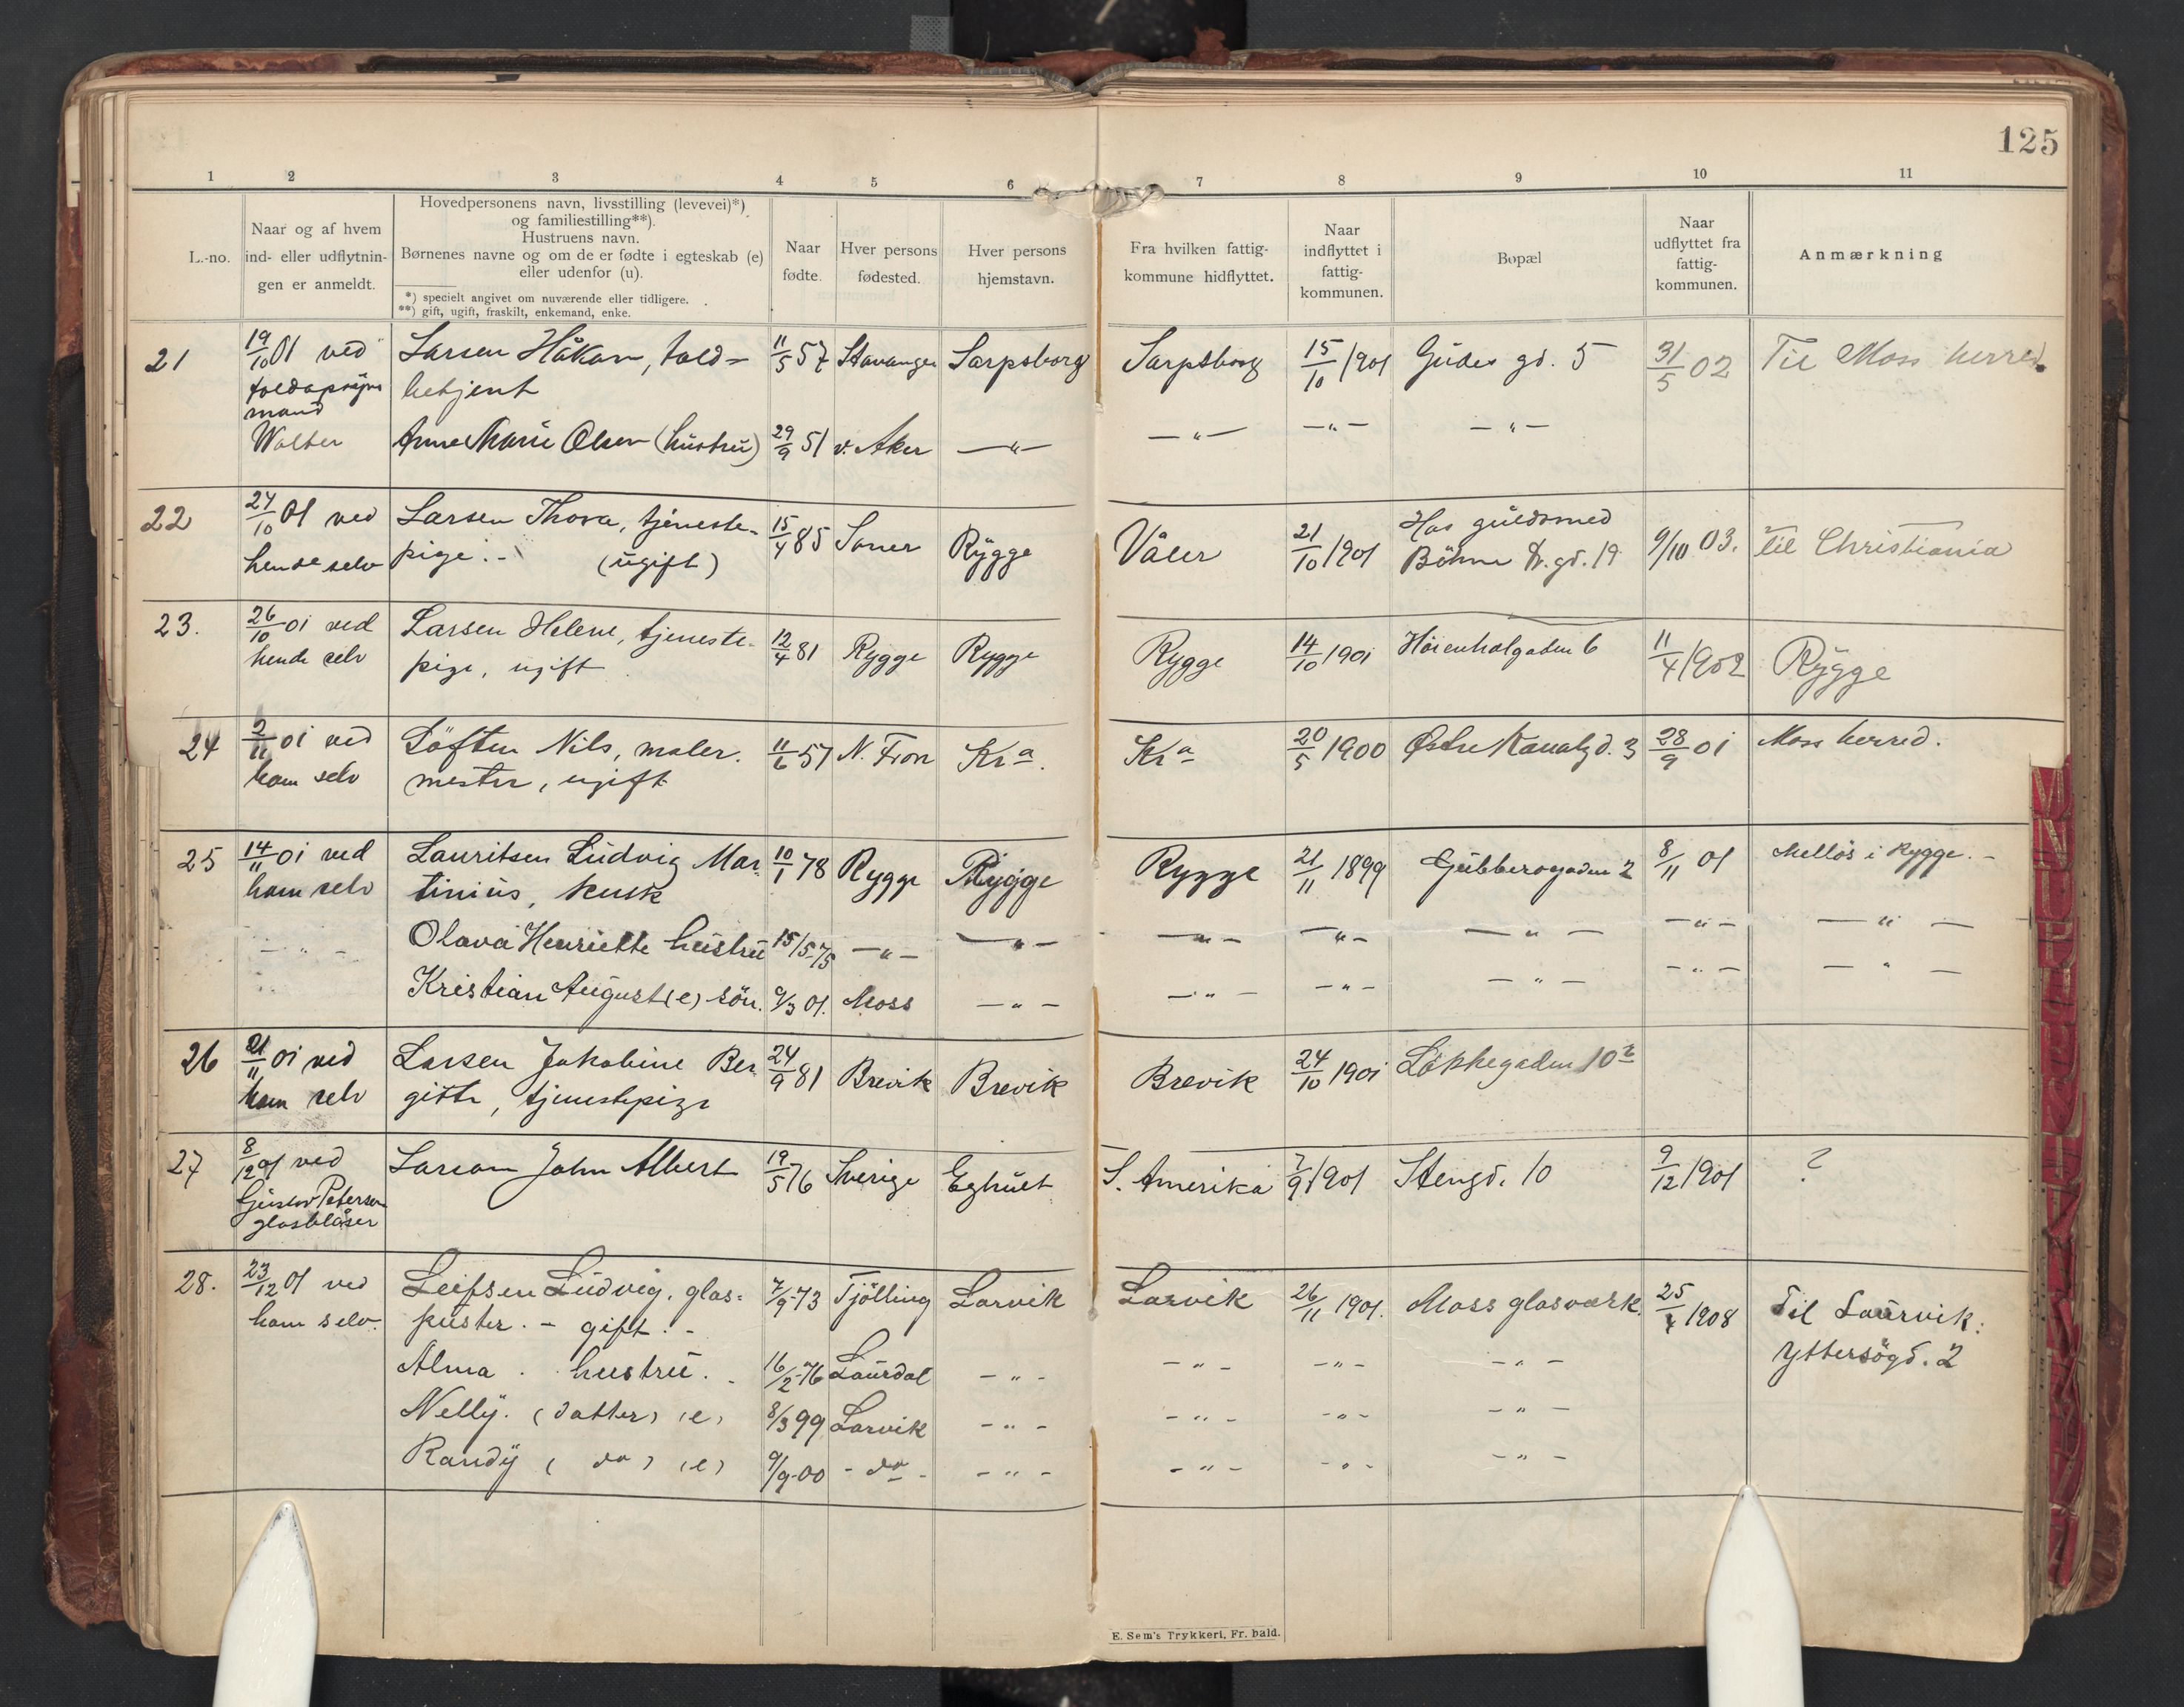 125
1 2 3 4 5 6 7 8 9 10 11
L.-no.
Naar og af hvem
ind- eller udflytnin-
gen er anmeldt.
Hovedpersonens navn, livsstilling (levevei)*)
og familiestilling**).
Hustruens navn.
Børnenes navne og om de er fødte i egteskab (e)
eller udenfor (u).
*) specielt angivet om nuværende eller tidligere.
**) gift, ugift, fraskilt, enkemand, enke.
Naar
fødte.
Hver persons
fødested.
Hver persons
hjemstavn.
Fra hvilken fattig-
kommune hidflyttet.
Naar
indflyttet i
fattig-
kommunen.
Bopæl
Naar
udflyttet fra
fattig-
kommunen.
Anmærkning
21 19/10 01 ved Larsen Håkon, told= 11/5 57 Stavanger Sarpsborg Sarpsborg 15/10 1901 Gudes gd. 5 31/5 02 Til Moss herred.
betjent
mand
Walter Anne Marie Olsen (hustru) 29/9 51 v. Aker —"— —"— —"— —"—
22 24/10 01 ved Larsen Thora, tjeneste- 15/4 85 Soner Rygge Våler 21/10 1901 Hos guldsmed 9/10 03. Til Christiania
hende selv pige.- (ugift) Böhme Dr. gd. 19
23. 26/10 01 ved Larsen Helene, tjeneste- 12/4 81 Rygge Rygge Rygge 14/10 1901 Høienhalgaden 6 11/4 1902 Rygge
hende selv pige, ugift
24 2/11 01 ved Löften Nils, maler- 11/6 57 N. Fron Kra. Kra 20/5 1900 Østre Kanalgd. 3 28/9 01 Moss herred.
ham selv mester, ugift
25 14/11 01 ved Lauritsen Ludvig Mar- 10/1 78 Rygge Rygge Rygge 21/11 1899 Gubberogaden 2 8/11 01 Melløs i Rygge.-
ham selv tinius, kusk
—"— Olava Henriette hustru 15/5-75 —"— —"— —"— —"— —"— —"— —"—
Kristian August (e) søn. 9/3 01. Moss —"— —"— —"— —"— —"— —"—
26 21/11 01 ved Larsen Jakobine Ber- 24/9 81 Brevik Brevik Brevik 24/10 1901 Løkkegaden 10
ham selv gitte, tjenestepige
27 8/12 01 ved Larson John Albert 19/5 76 Sverige Eghult S. Amerika 7/9 1901 Stengd. 10 9/12 1901 ?
Gustav Petersen
glasblåser
28. 23/12 01 ved Leifsen Ludvig, glas= 7/9-73 Tjölling Larvik Larvik 26/11 1901. Moss glasværk. 25/4 1908 Til Laurvik:
ham selv. puster.- gift.- Yttersøgd. 2
Alma. hustru. 16/2-76 Laurdal —"— —"— —"— —"—
Nelly. (datter) (e) 8/3 99 Larvik —"— —"— —"— —"—
Randy (do) (e) 9/9-00 - do - —"— —"— —"— —"—
E. Sem's Trykkeri, Fr. hald.